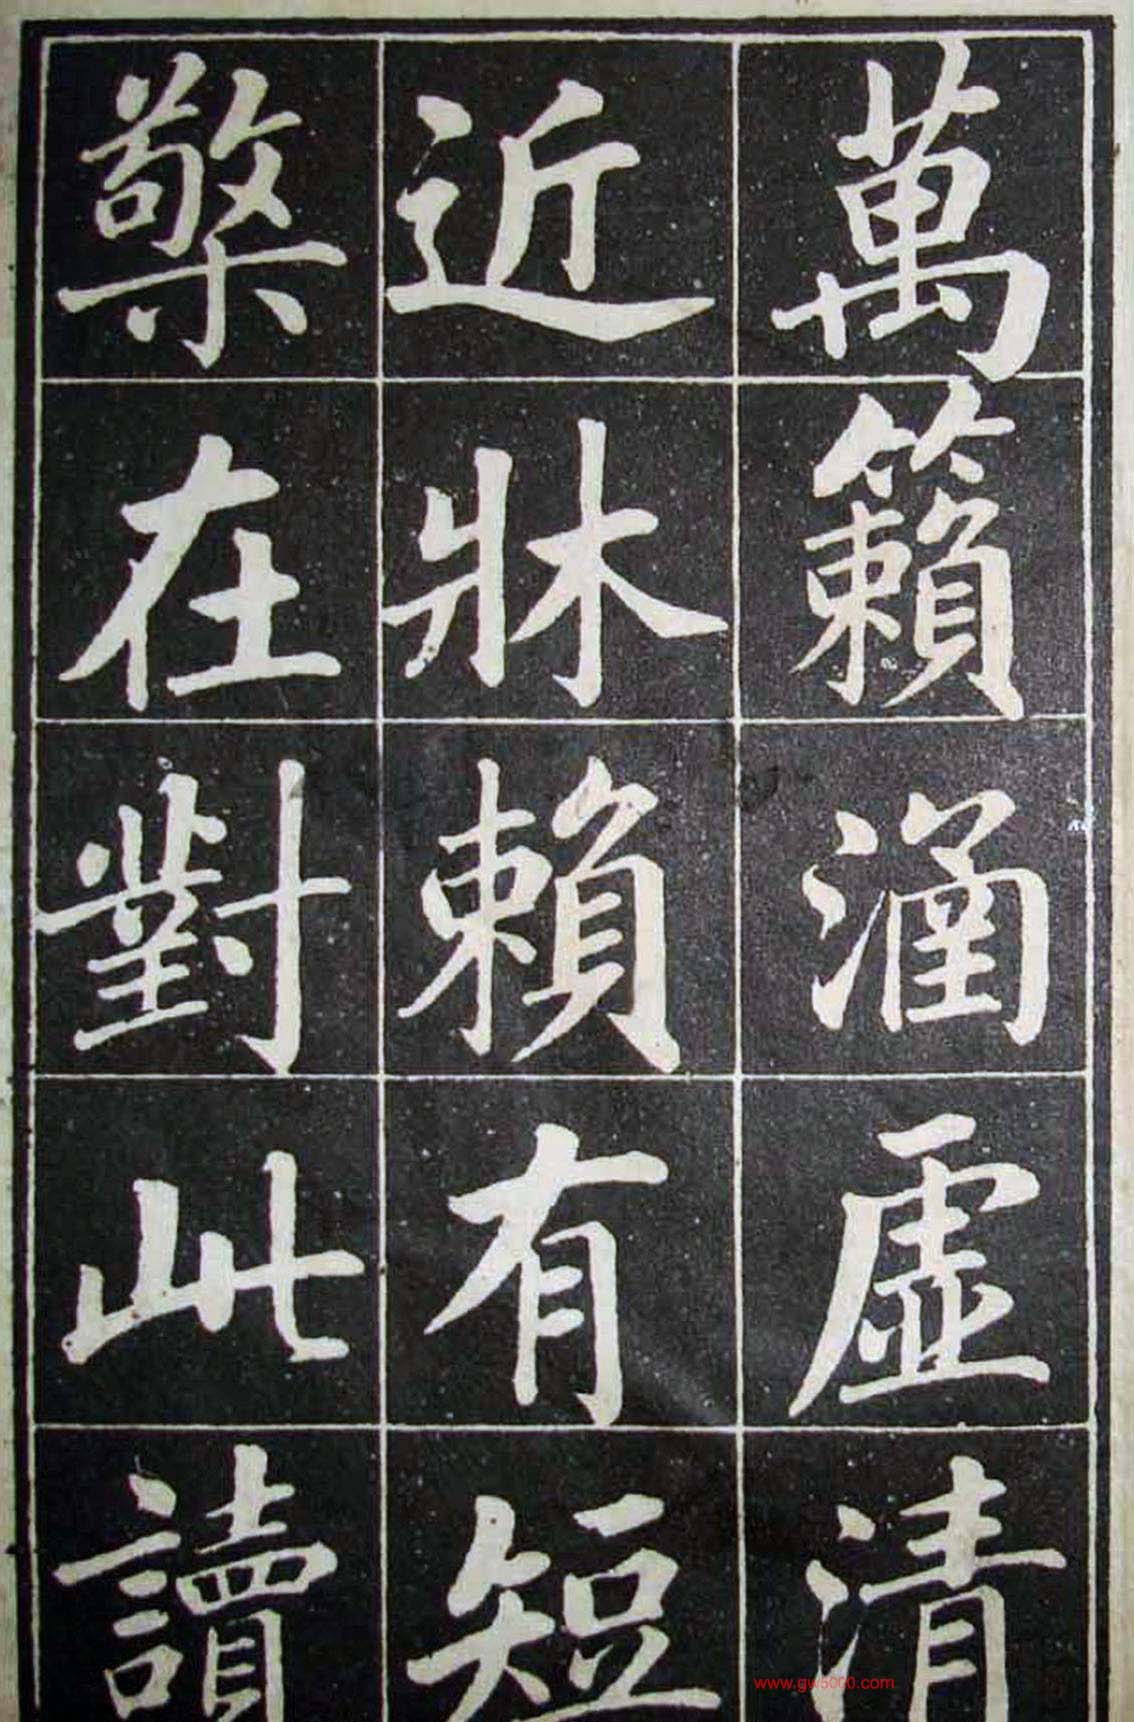 萬籟涵虛清
近牀賴有短
檠在對此讀
www.gw5000.com